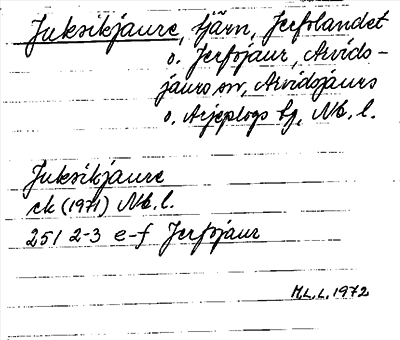 Juksikjaure, tjärn, Jerfolandet
o. Jerfojaur, Arvids-
jaurs sn, Arvidsjaurs
o. Arjeplogs lg, Nb. l.
Juksikjaure
ek (1971) Nb. l.
25I 2-3 e-f Jerfojaur
M.L.L. 1972